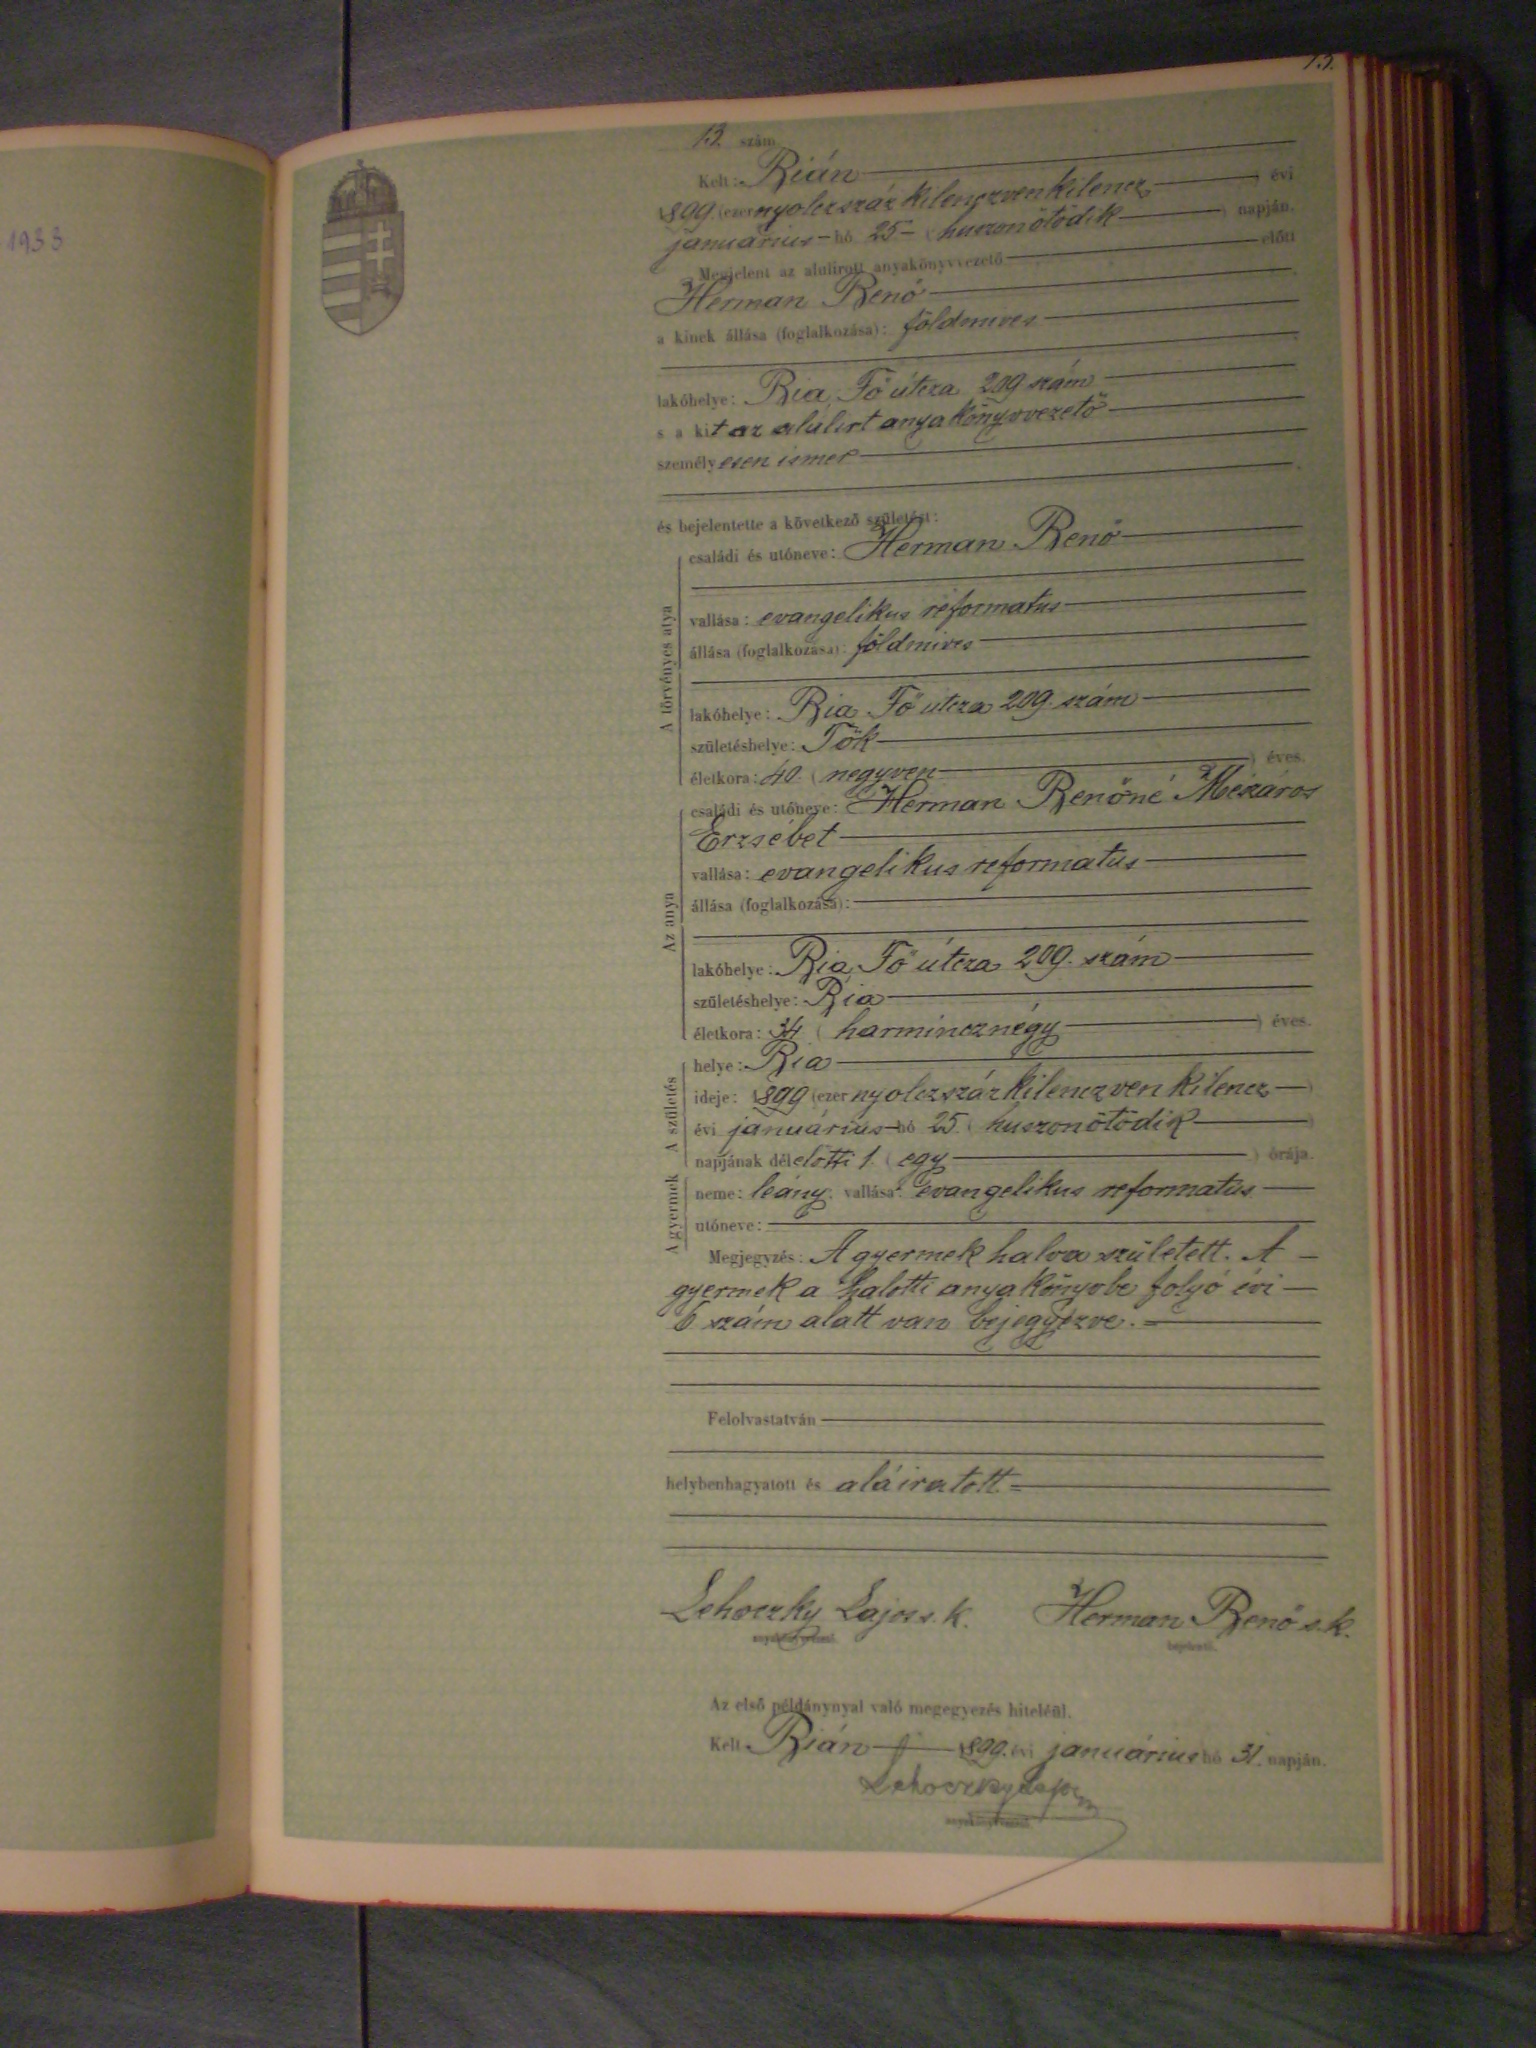 1933
13.
13. szám
Kelt: Bián
1899. (ezer nyolczszáz kilenczvenkilencz) évi
januárius hó 25 (huszonötödik) napján.
Megjelent az alulirott anyakönyvvezető előtt
Herman Benő
a kinek állása (foglalkozása): földmives
lakóhelye: Bia, Fő útcza 209 szám
s a kit az alulirt anyakönyvvezető
személyesen ismer
és bejelentette a következő születést:
A törvényes atya
családi és utóneve: Herman Benő
vallása: evangelikus reformatus
állása (foglalkozása): földmives
lakóhelye: Bia Fő útcza 209. szám
születéshelye: Tök
életkora: 40. (negyven) éves.
Az anya
családi és utóneve: Herman Benőné Mészáros
Erzsébet
vallása: evangelikus reformatus
állása (foglalkozása):
lakóhelye: Bia, Fő útcza 209. szám
születéshelye: Bia
életkora: 34 (harmincznégy) éves.
A születés
helye: Bia
ideje: 1899 (ezer nyolczszáz kilenczven kilencz)
évi januárius hó 25. (huszonötödik)
napjának délelőtti 1. (egy) órája.
A gyermek
neme: leány. vallása: evangelikus reformatus
utóneve:
Megjegyzés: A gyermek halva született. A
gyermek a halotti anyakönyvbe folyó évi
6 szám alatt van bejegyezve.
Felolvastatván
helybenhagyatott és aláiratott
Lehoczky Lajos s. k. Herman Benő s. k.
anyakönyvvezető. bejelentő.
Az első példánynyal való megegyezés hiteléül.
Kelt Bián 1899. évi januárius hó 31. napján.
Lehoczky Lajos
anyakönyvvezető.